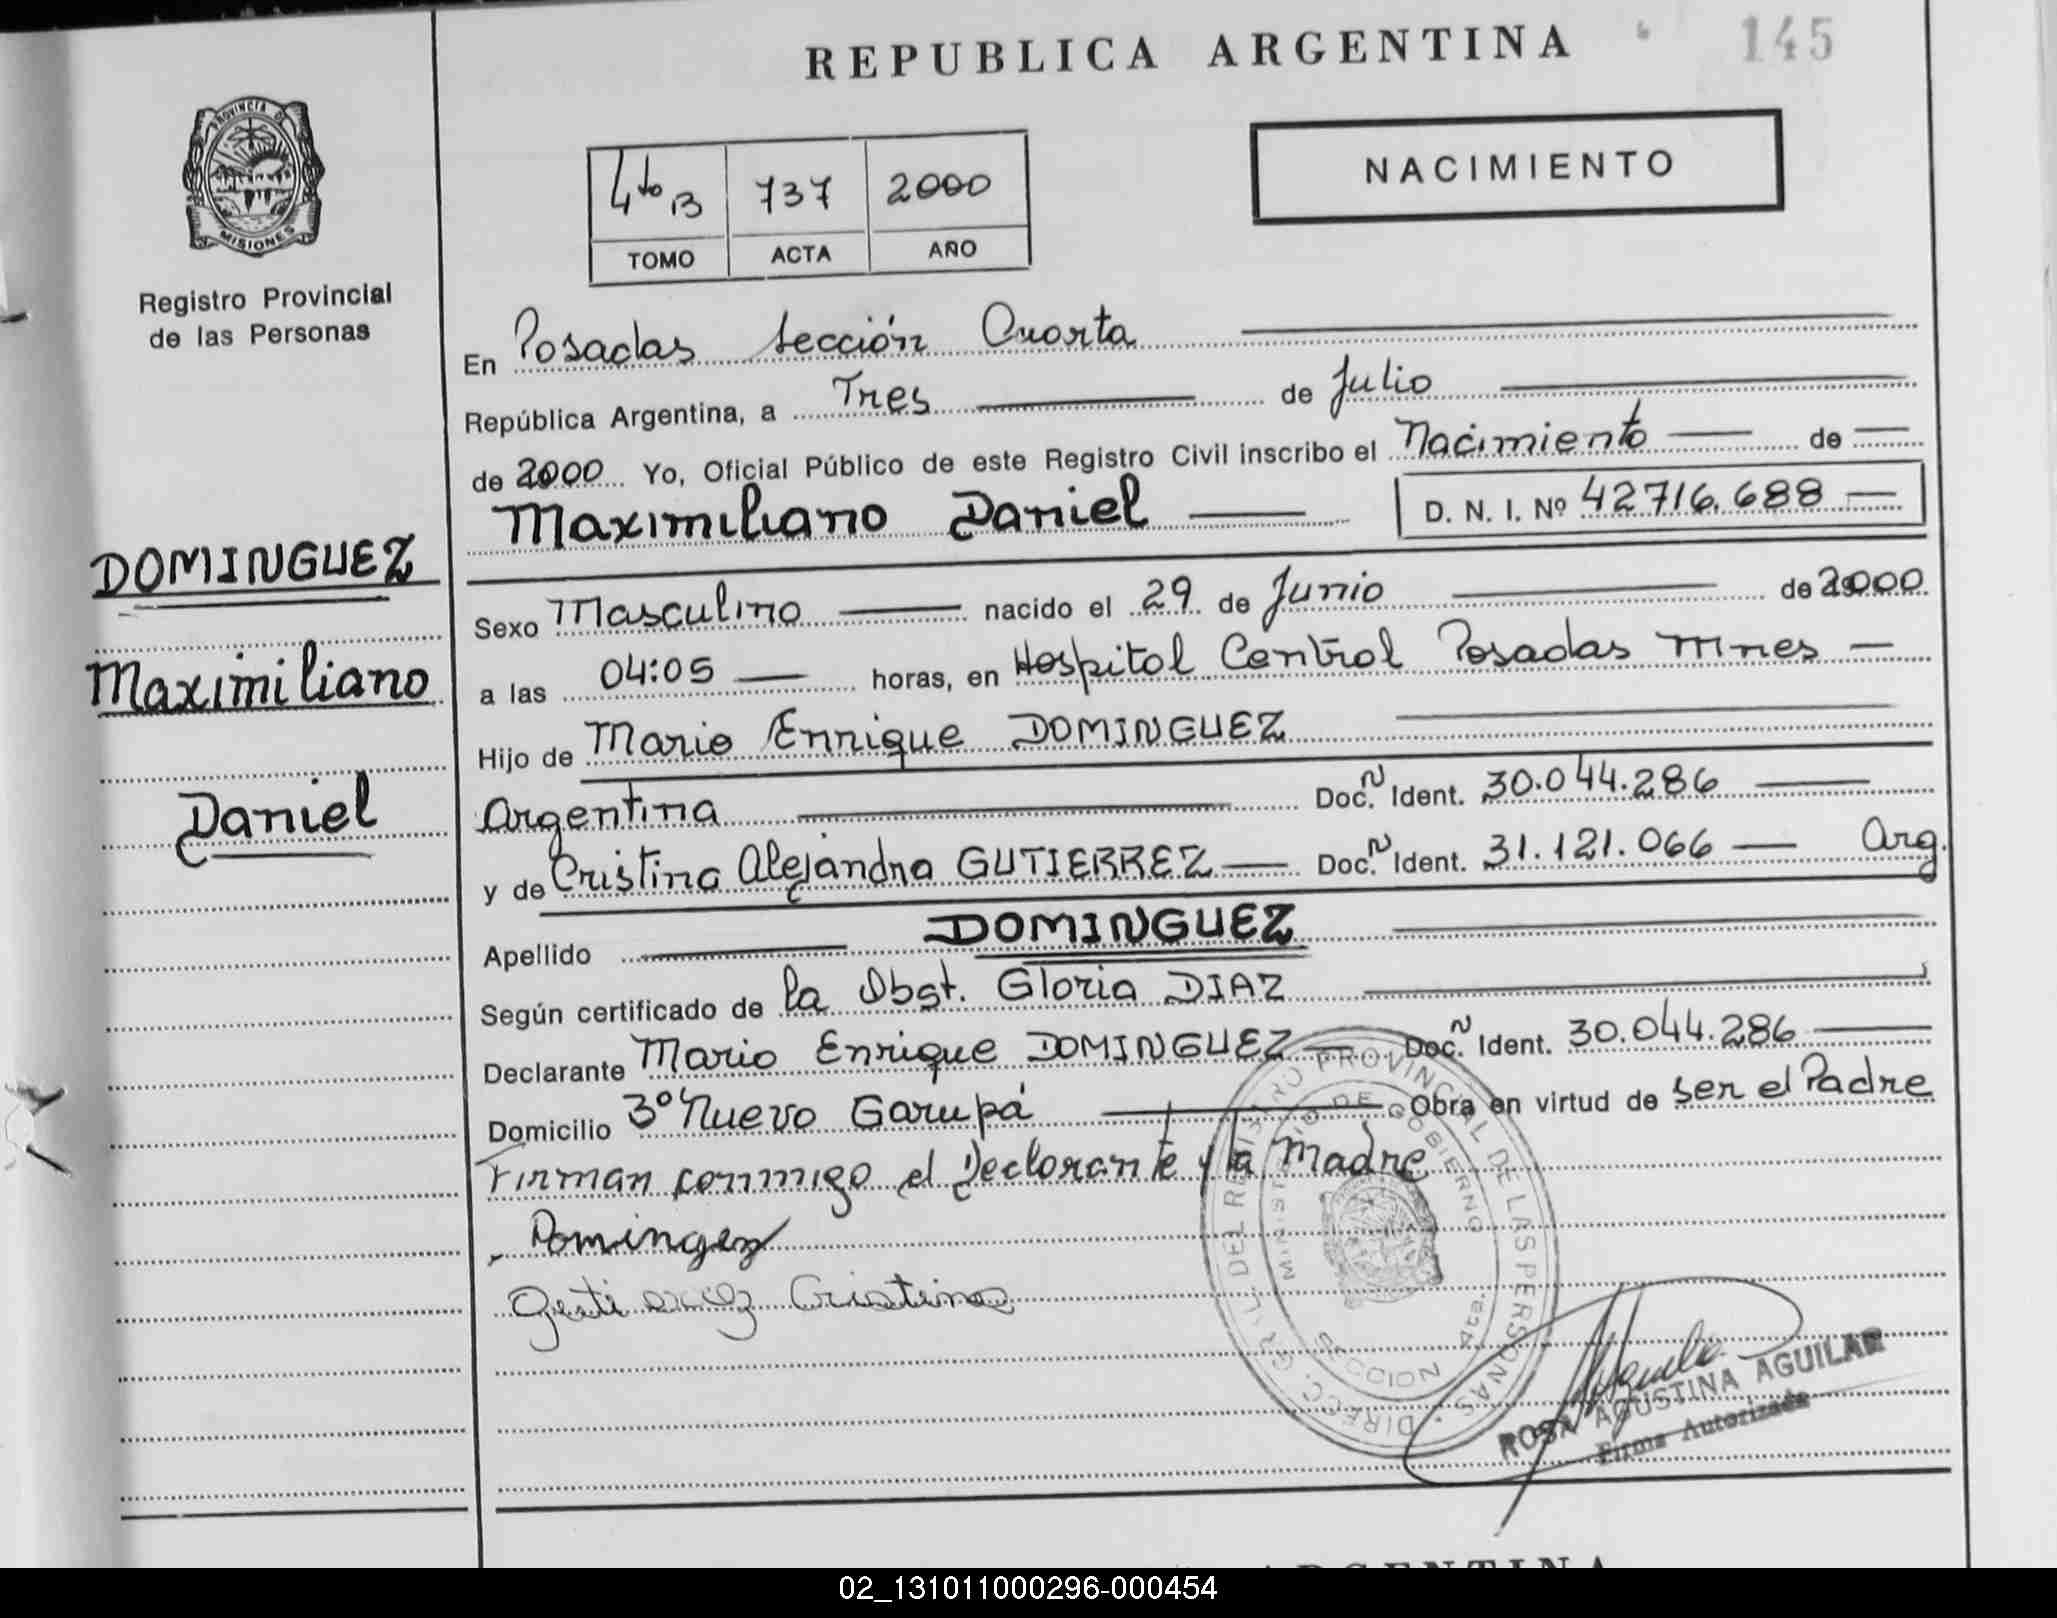 REPUBLICA ARGENTINA
145
PROVINCIA DE
MISIONES
Registro Provincial
de las Personas
4to B 737 2000
TOMO ACTA AÑO
NACIMIENTO
En Posadas Sección Cuarta
República Argentina, a Tres de Julio
de 2000 Yo, Oficial Público de este Registro Civil inscribo el Nacimiento de
Maximiliano Daniel D. N. I. Nº 42716.688
DOMINGUEZ
Maximiliano
Daniel
Sexo Masculino nacido el 29 de Junio de 2000
a las 04:05 horas, en Hospital Central Posadas Mnes
Hijo de Mario Enrique DOMINGUEZ
Argentina Doc. N Ident. 30.044.286
y de Cristina Alejandra GUTIERREZ Doc. N Ident. 31.121.066 Arg.
Apellido DOMINGUEZ
Según certificado de la Obst. Gloria DIAZ
Declarante Mario Enrique DOMINGUEZ Doc. N Ident. 30.044.286
Domicilio 3º Nuevo Garupá Obra en virtud de ser el Padre
Firman conmigo el Declarante y la Madre
Domingez
Gutierrez Cristina
DIRECC. GRAL. DEL REGISTRO PROVINCIAL DE LAS PERSONAS
MINISTERIO DE GOBIERNO
SECCION 4ta.
ROSA AGUSTINA AGUILAR
Firma Autorizada
ARGENTINA
02_131011000296-000454